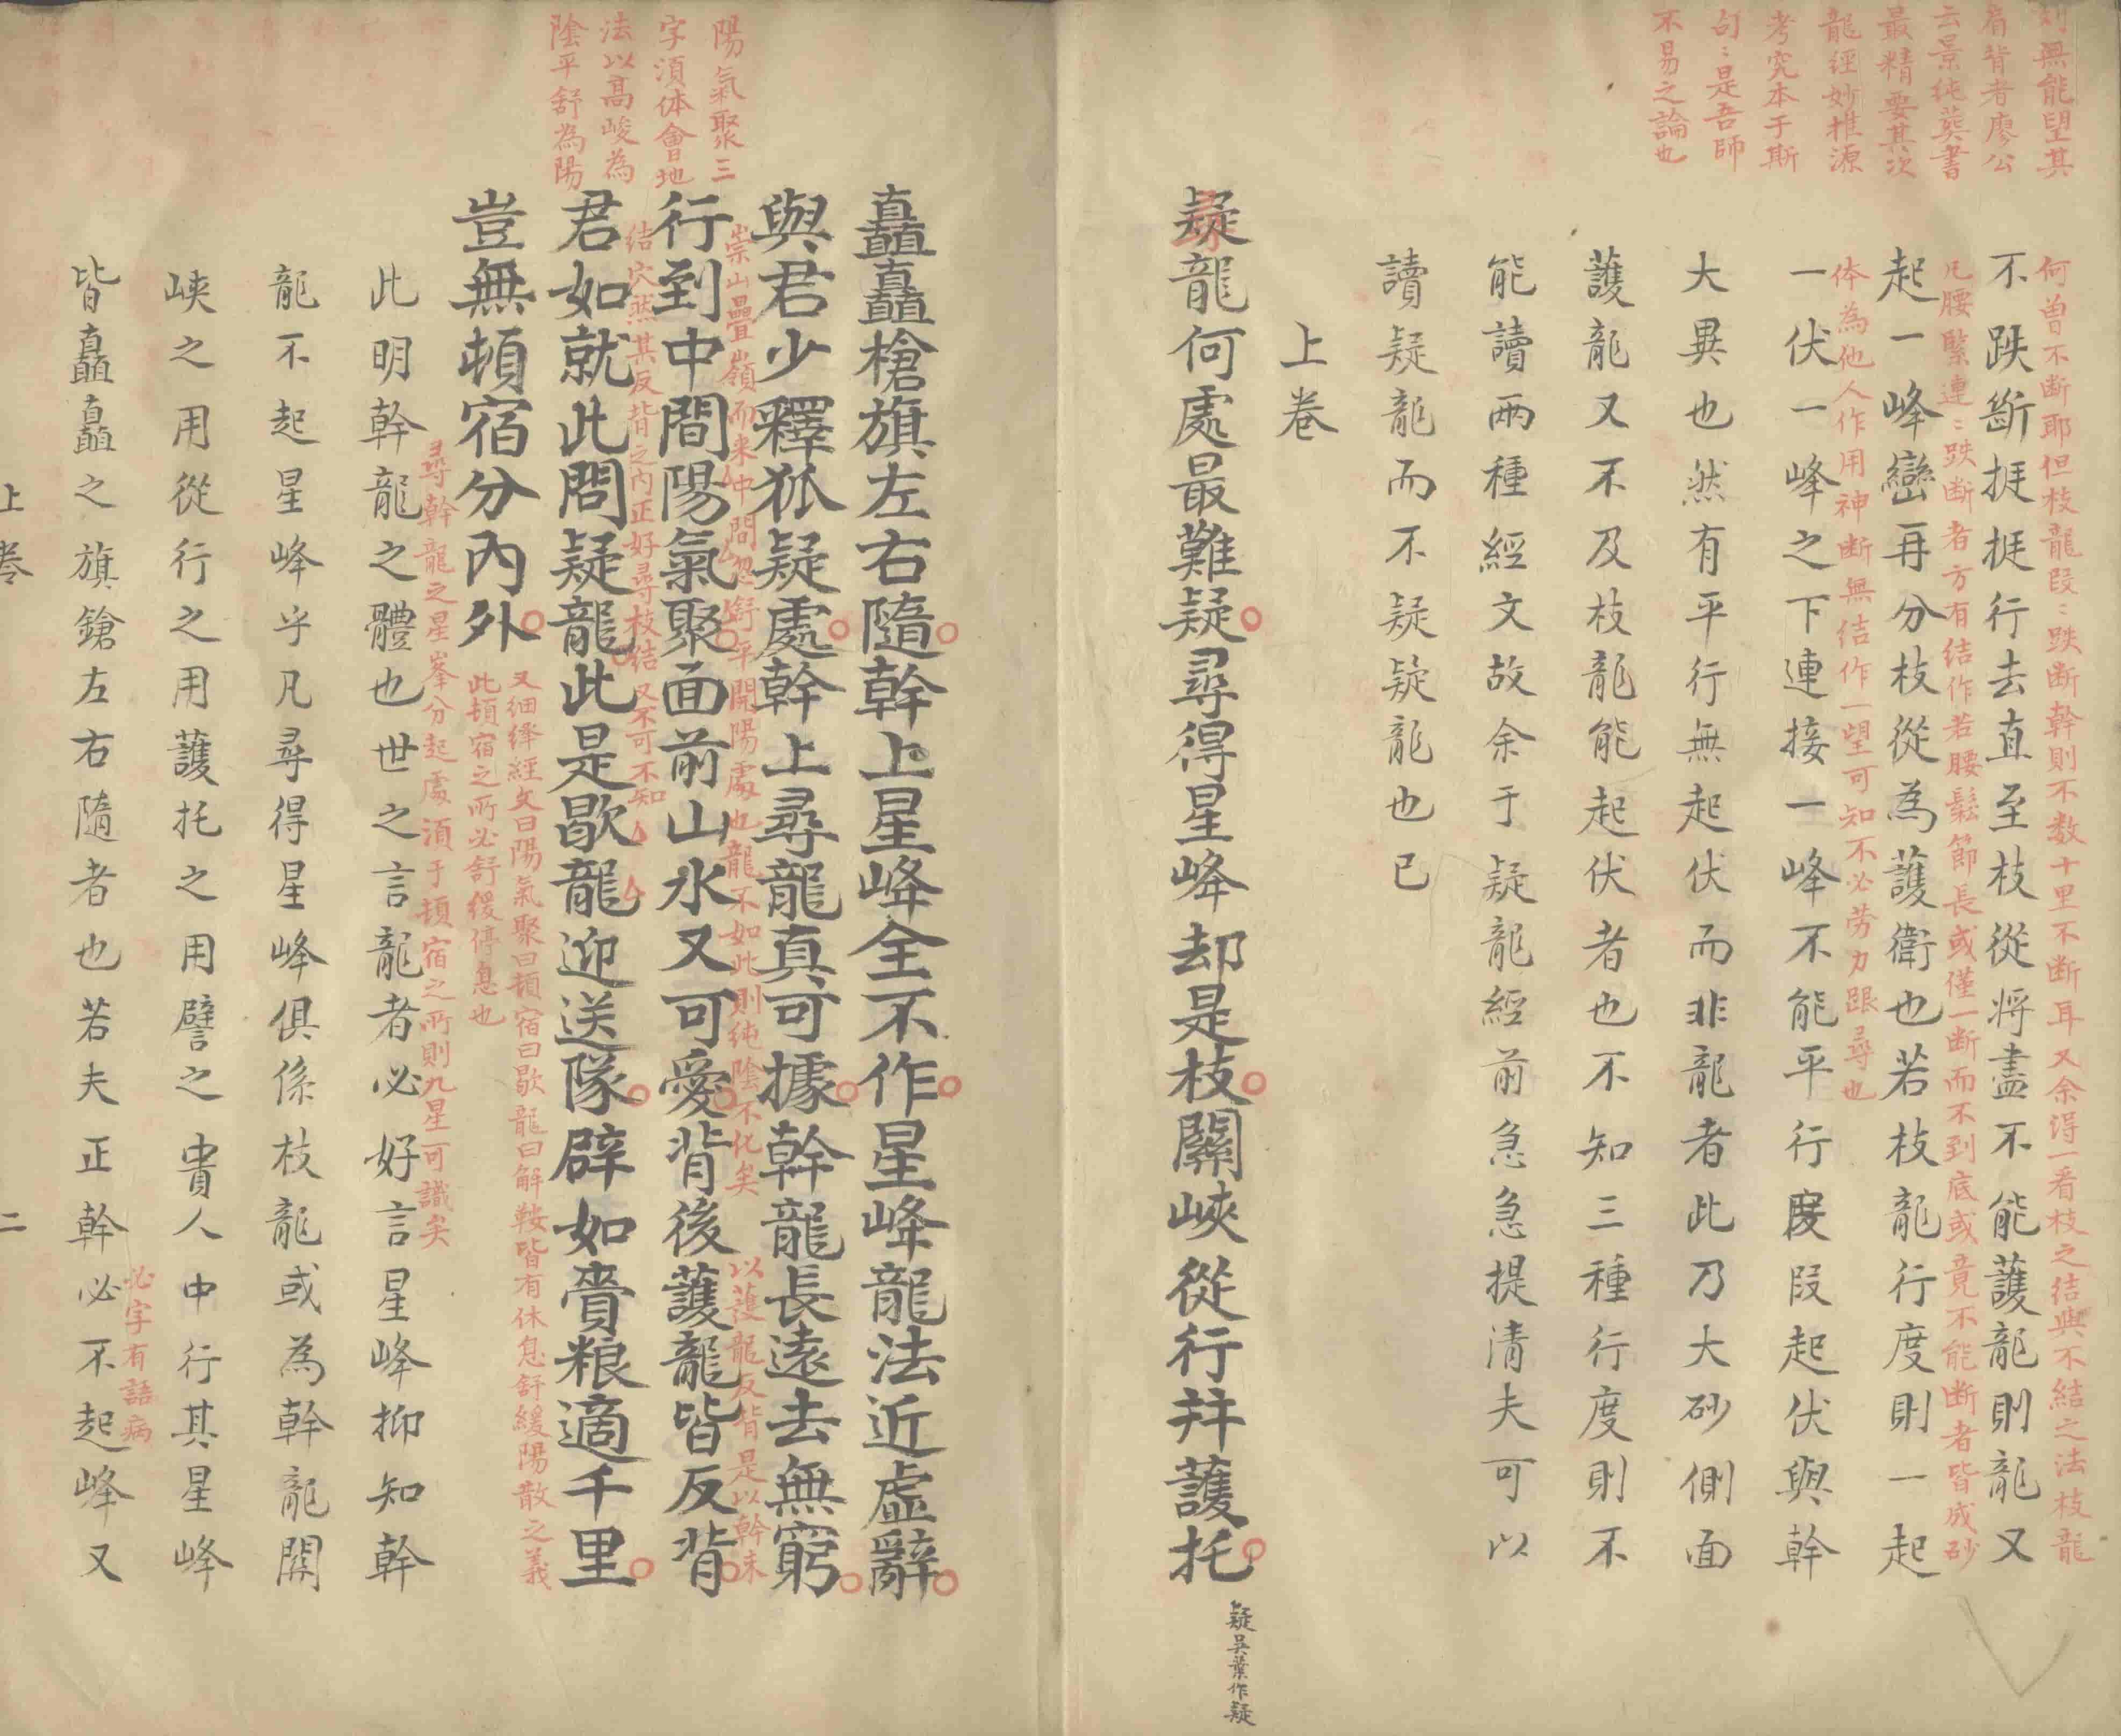 則無能望其
肩背者廖公
云景純葬書
最精要其次
龍經妙推源
考究本于斯
句﹕是吾師
不易之論也
何曾不断耶但枝龍段﹕跌断幹則不数十里不断耳又余得一看枝之結與不結之法枝龍
不跌斷挺挺行去直至枝從將盡不能護龍則龍又
凡腰緊連﹕跌断者方有結作若腰鬆節長或僅一断而不到底或竟不能断者皆成砂
起一峰巒再分枝從為護衛也若枝龍行度則一起
体為他人作用神断無結作一望可知不必劳力跟尋也
一伏一峰之下連接一峰不能平行度段起伏與幹
大異也然有平行無起伏而非龍者此乃大砂側面
護龍又不及枝龍能起伏者也不知三種行度則不
能讀兩種經文故余于疑龍經前急急提清夫可以
讀疑龍而不疑疑龍也已
上卷
疑龍何處最難疑尋得星峰却是枝關峽從行并護托
疑吳葉作疑
矗矗槍旗左右隨幹上星峰全不作星峰龍法近虛辭
與君少釋狐疑處幹上尋龍真可據幹龍長遠去無窮
陽氣聚三
字湏体會地
法以高峻為
陰平舒為陽
崇山疊嶺而来中間忽舒平開陽處也龍不如此則純陰不化矣
以護龍反背是以幹未
行到中間陽氣聚面前山水又可愛背後護龍皆反背
結穴然其反背之内正好尋枝結又不可不知
君如就此問疑龍此是歇龍迎送隊辟如賫粮適千里
豈無頓宿分內外
又細繹經文曰陽氣聚曰頓宿曰歇龍曰解鞍皆有休息舒緩陽散之義
此頓宿之所必舒緩停息也
尋幹龍之星峯分起處湏于頓宿之所則九星可識矣
此明幹龍之體也世之言龍者必好言星峰抑知幹
龍不起星峰乎凡尋得星峰俱係枝龍或為幹龍關
峽之用從行之用護托之用譬之貴人中行其星峰
必字有語病
皆矗矗之旗鎗左右隨者也若夫正幹必不起峰又
上卷
二